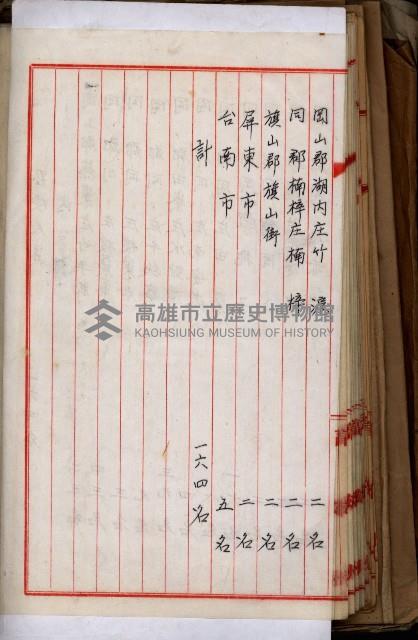 岡山郡湖内庄竹滬 二名
同郡楠梓庄楠梓 二名
旗山郡旗山街 二名
屏東市 二名
台南市 五名
計 一六四名
高雄市立歷史博物館
KAOHSIUNG MUSEUM OF HISTORY